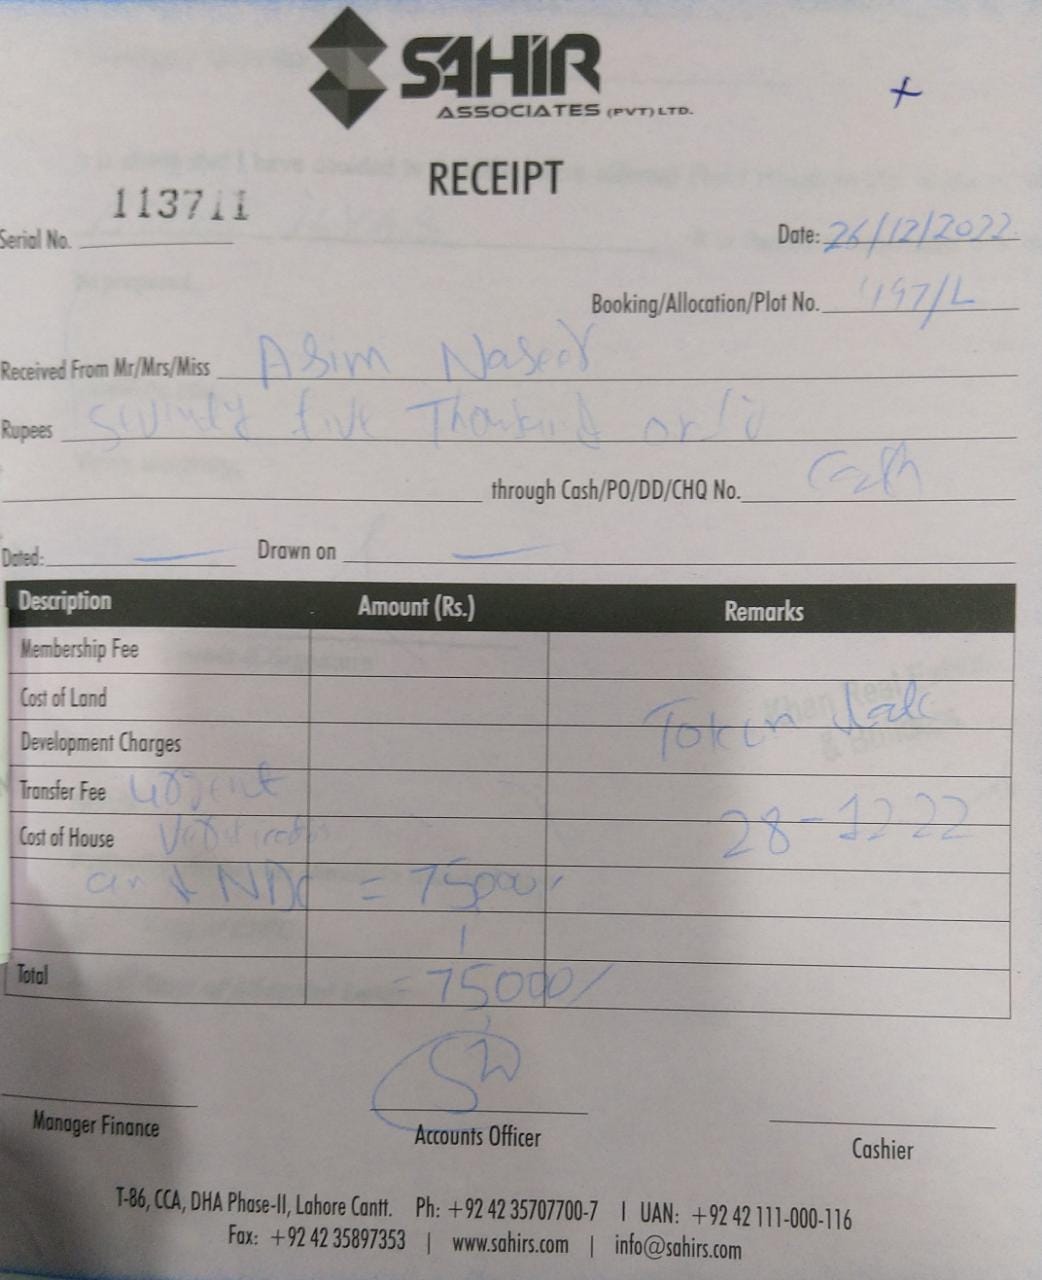 SAHIR
ASSOCIATES (PVT) LTD.
+
RECEIPT
Serial No. 113711
Date: 26/12/2022
Booking/Allocation/Plot No. 197/L
Received From Mr/Mrs/Miss Asim Naseer
Rupees five Thousand
through Cash/PO/DD/CHQ No. Cash
Dated: — Drawn on —
Description Amount (Rs.) Remarks
Membership Fee
Cost of Land Token
Development Charges
Transfer Fee urgent
Cost of House 28-12-22
and NDC = 75000/
Total = 75000/
Manager Finance
Accounts Officer
Cashier
T-86, CCA, DHA Phase-II, Lahore Cantt. Ph: +92 42 35707700-7 | UAN: +92 42 111-000-116
Fax: +92 42 35897353 | www.sahirs.com | info@sahirs.com